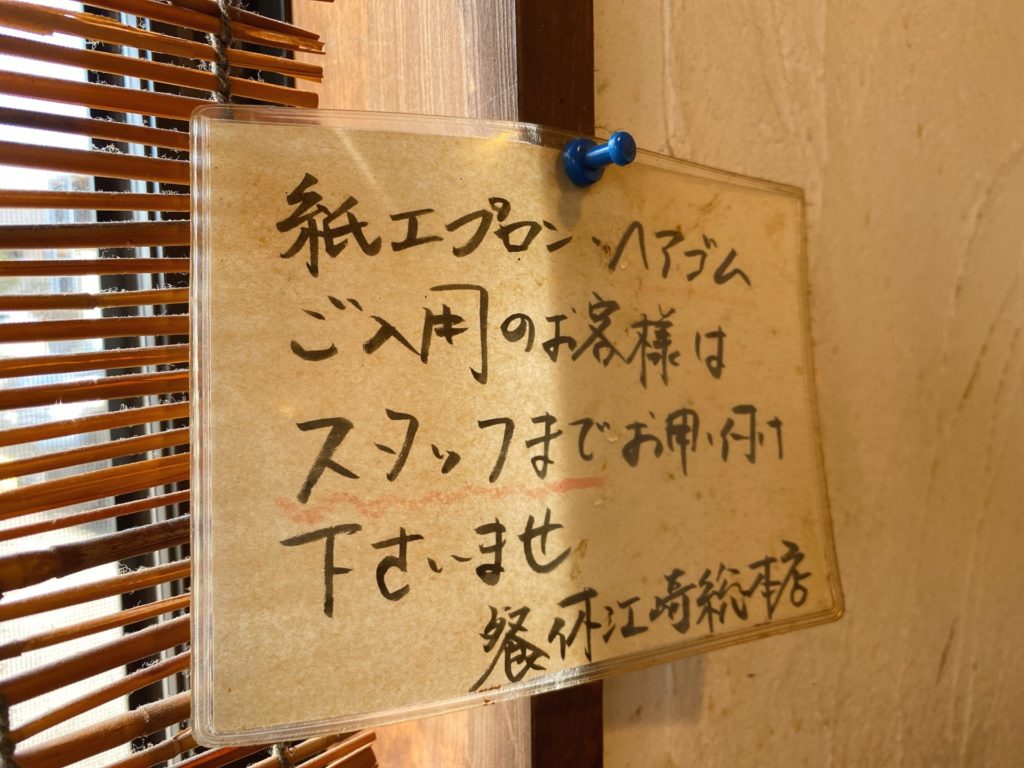 紙エプロン・ヘアゴム
ご入用のお客様は
スタッフまでお用い付け
下さいませ
餐休江崎総本店